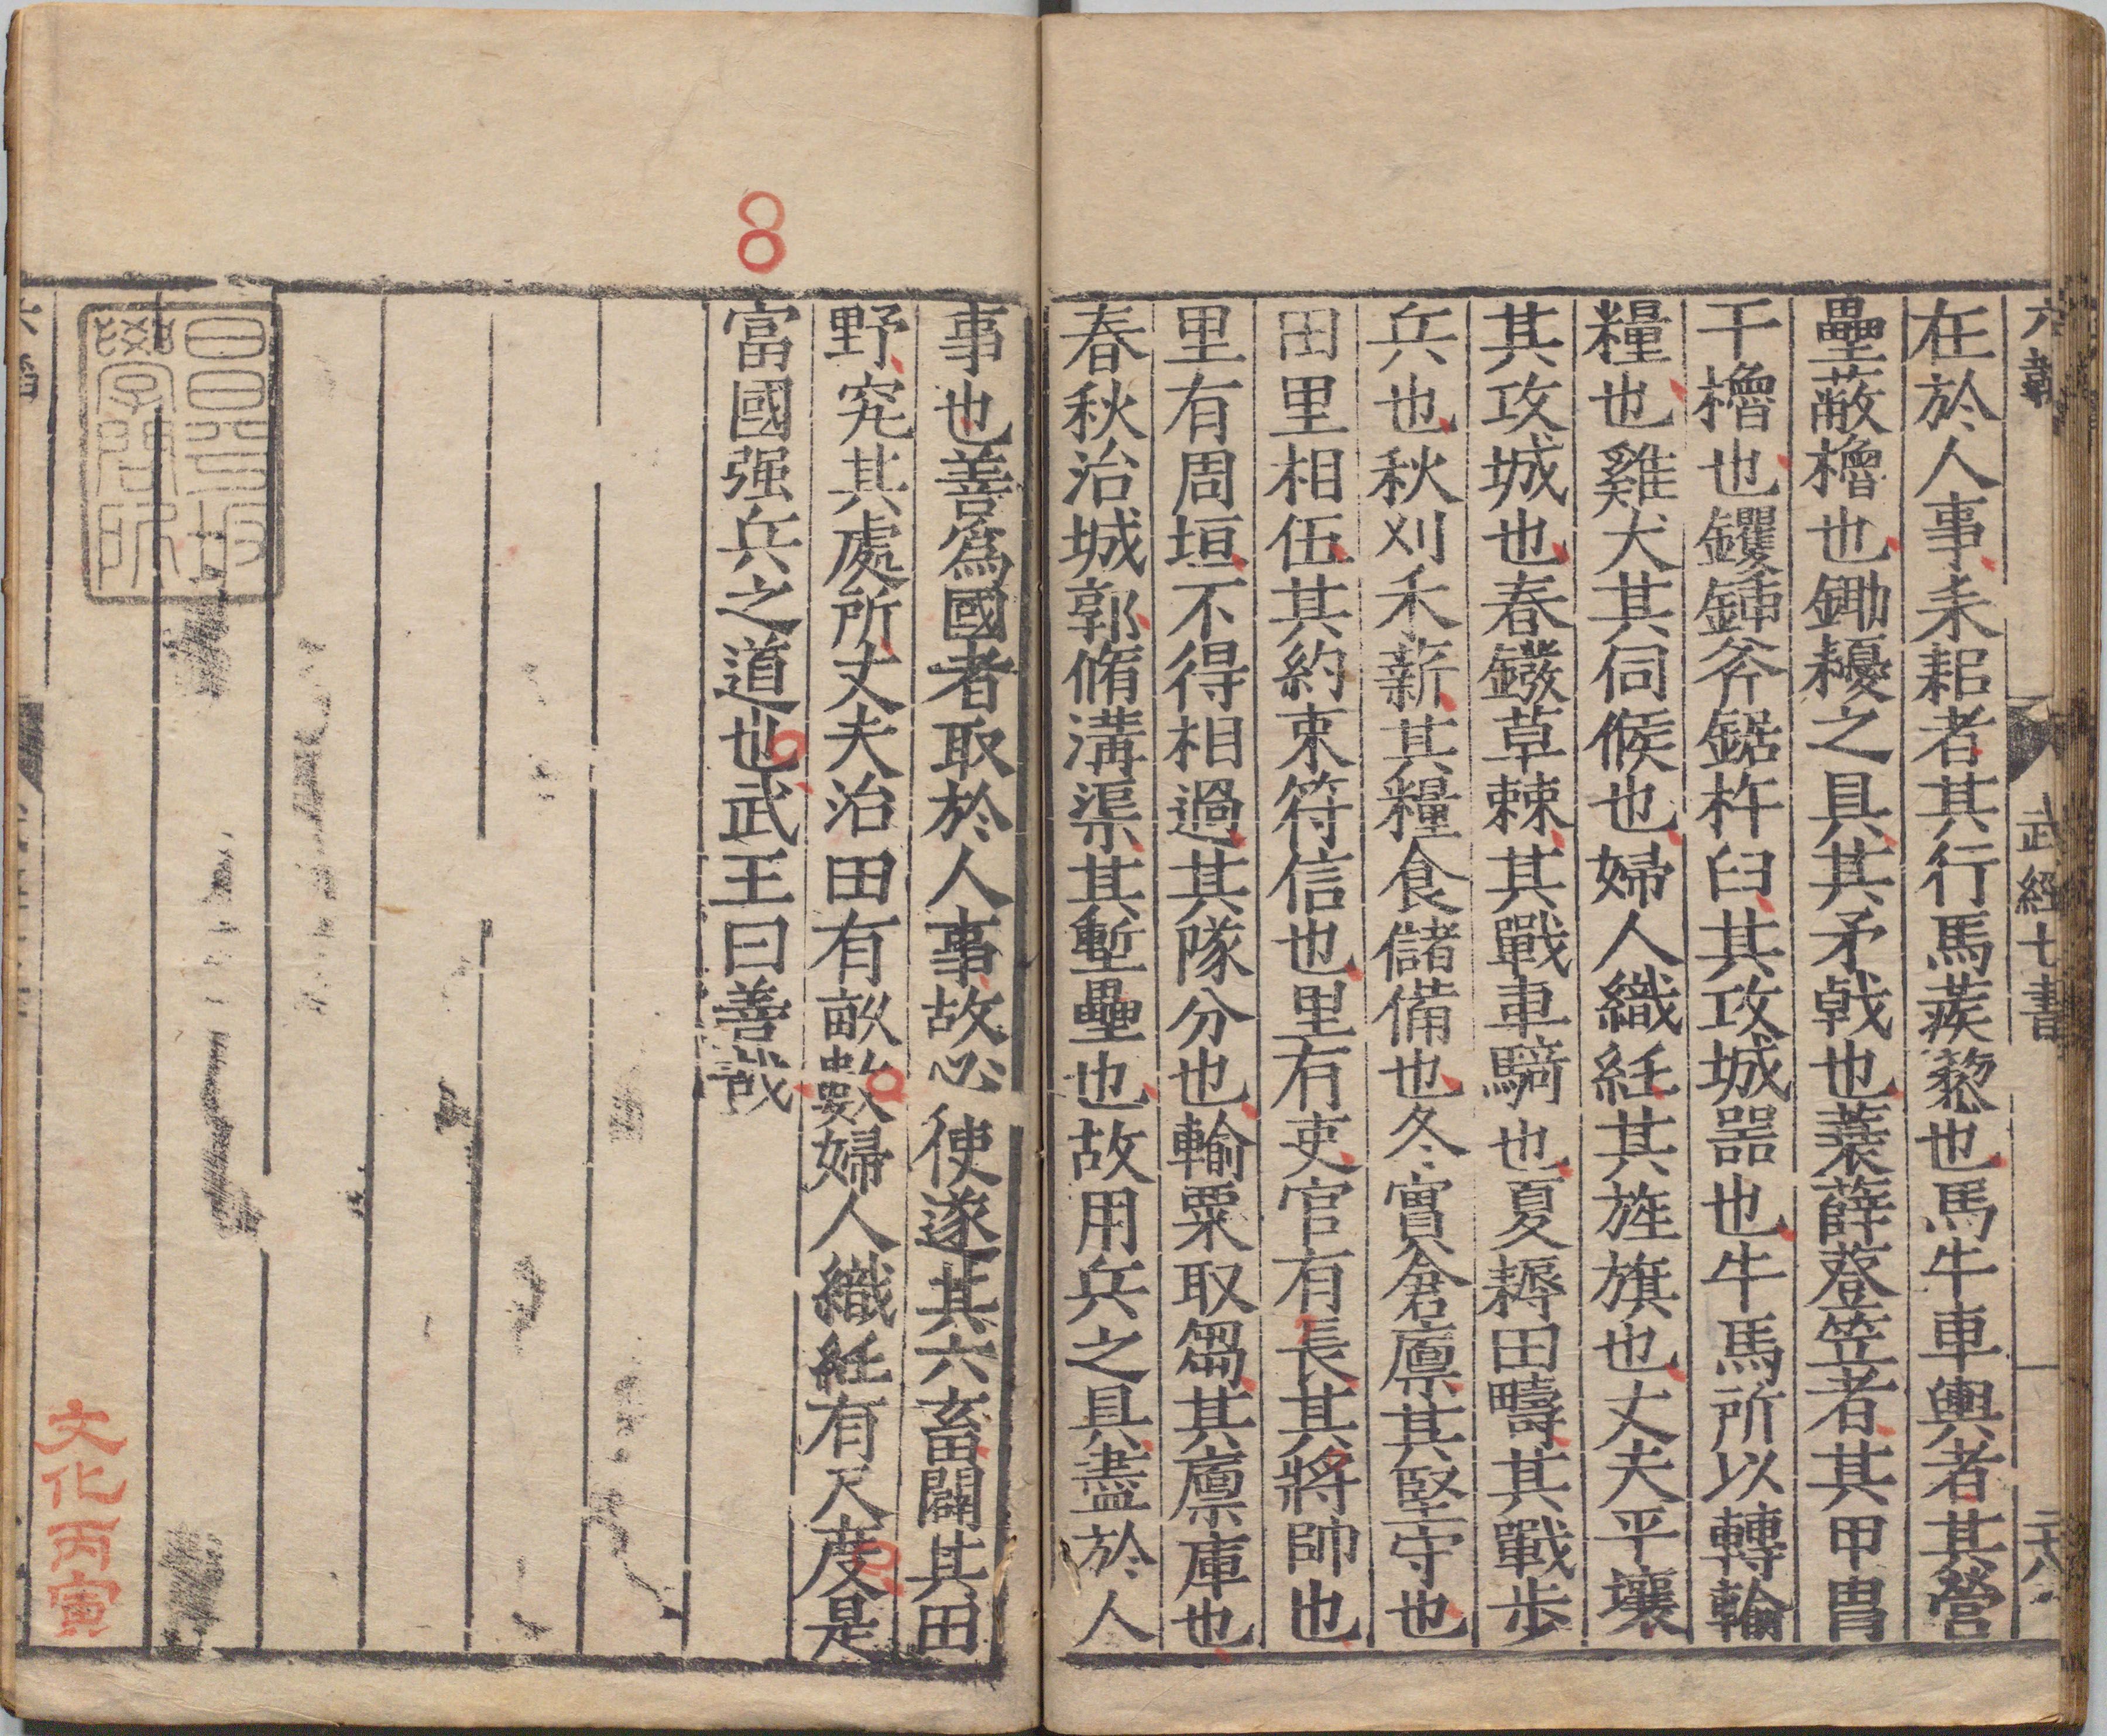 六韜
武經七書
二八
在於人事耒耜者其行馬蒺藜也馬牛車輿者其營
壘蔽櫓也鋤耰之具其矛戟也蓑薛簦笠者其甲冑
干櫓也钁鍤斧鋸杵臼其攻城器也牛馬所以轉輸
糧也雞犬其伺候也婦人織紝其旌旗也丈夫平壤
其攻城也春鏺草棘其戰車騎也夏耨田疇其戰步
兵也秋刈禾薪其糧食儲備也冬實倉廩其堅守也
田里相伍其約束符信也里有吏官有長其將帥也
里有周垣不得相過其隊分也輸粟取芻其廩庫也
春秋治城郭脩溝渠其塹壘也故用兵之具盡於人
事也善爲國者取於人事故必使遂其六畜闢其田
野究其處所丈夫治田有畝數婦人織紝有尺度是
富國强兵之道也武王曰善哉
昌平坂
學問所
文化丙寅